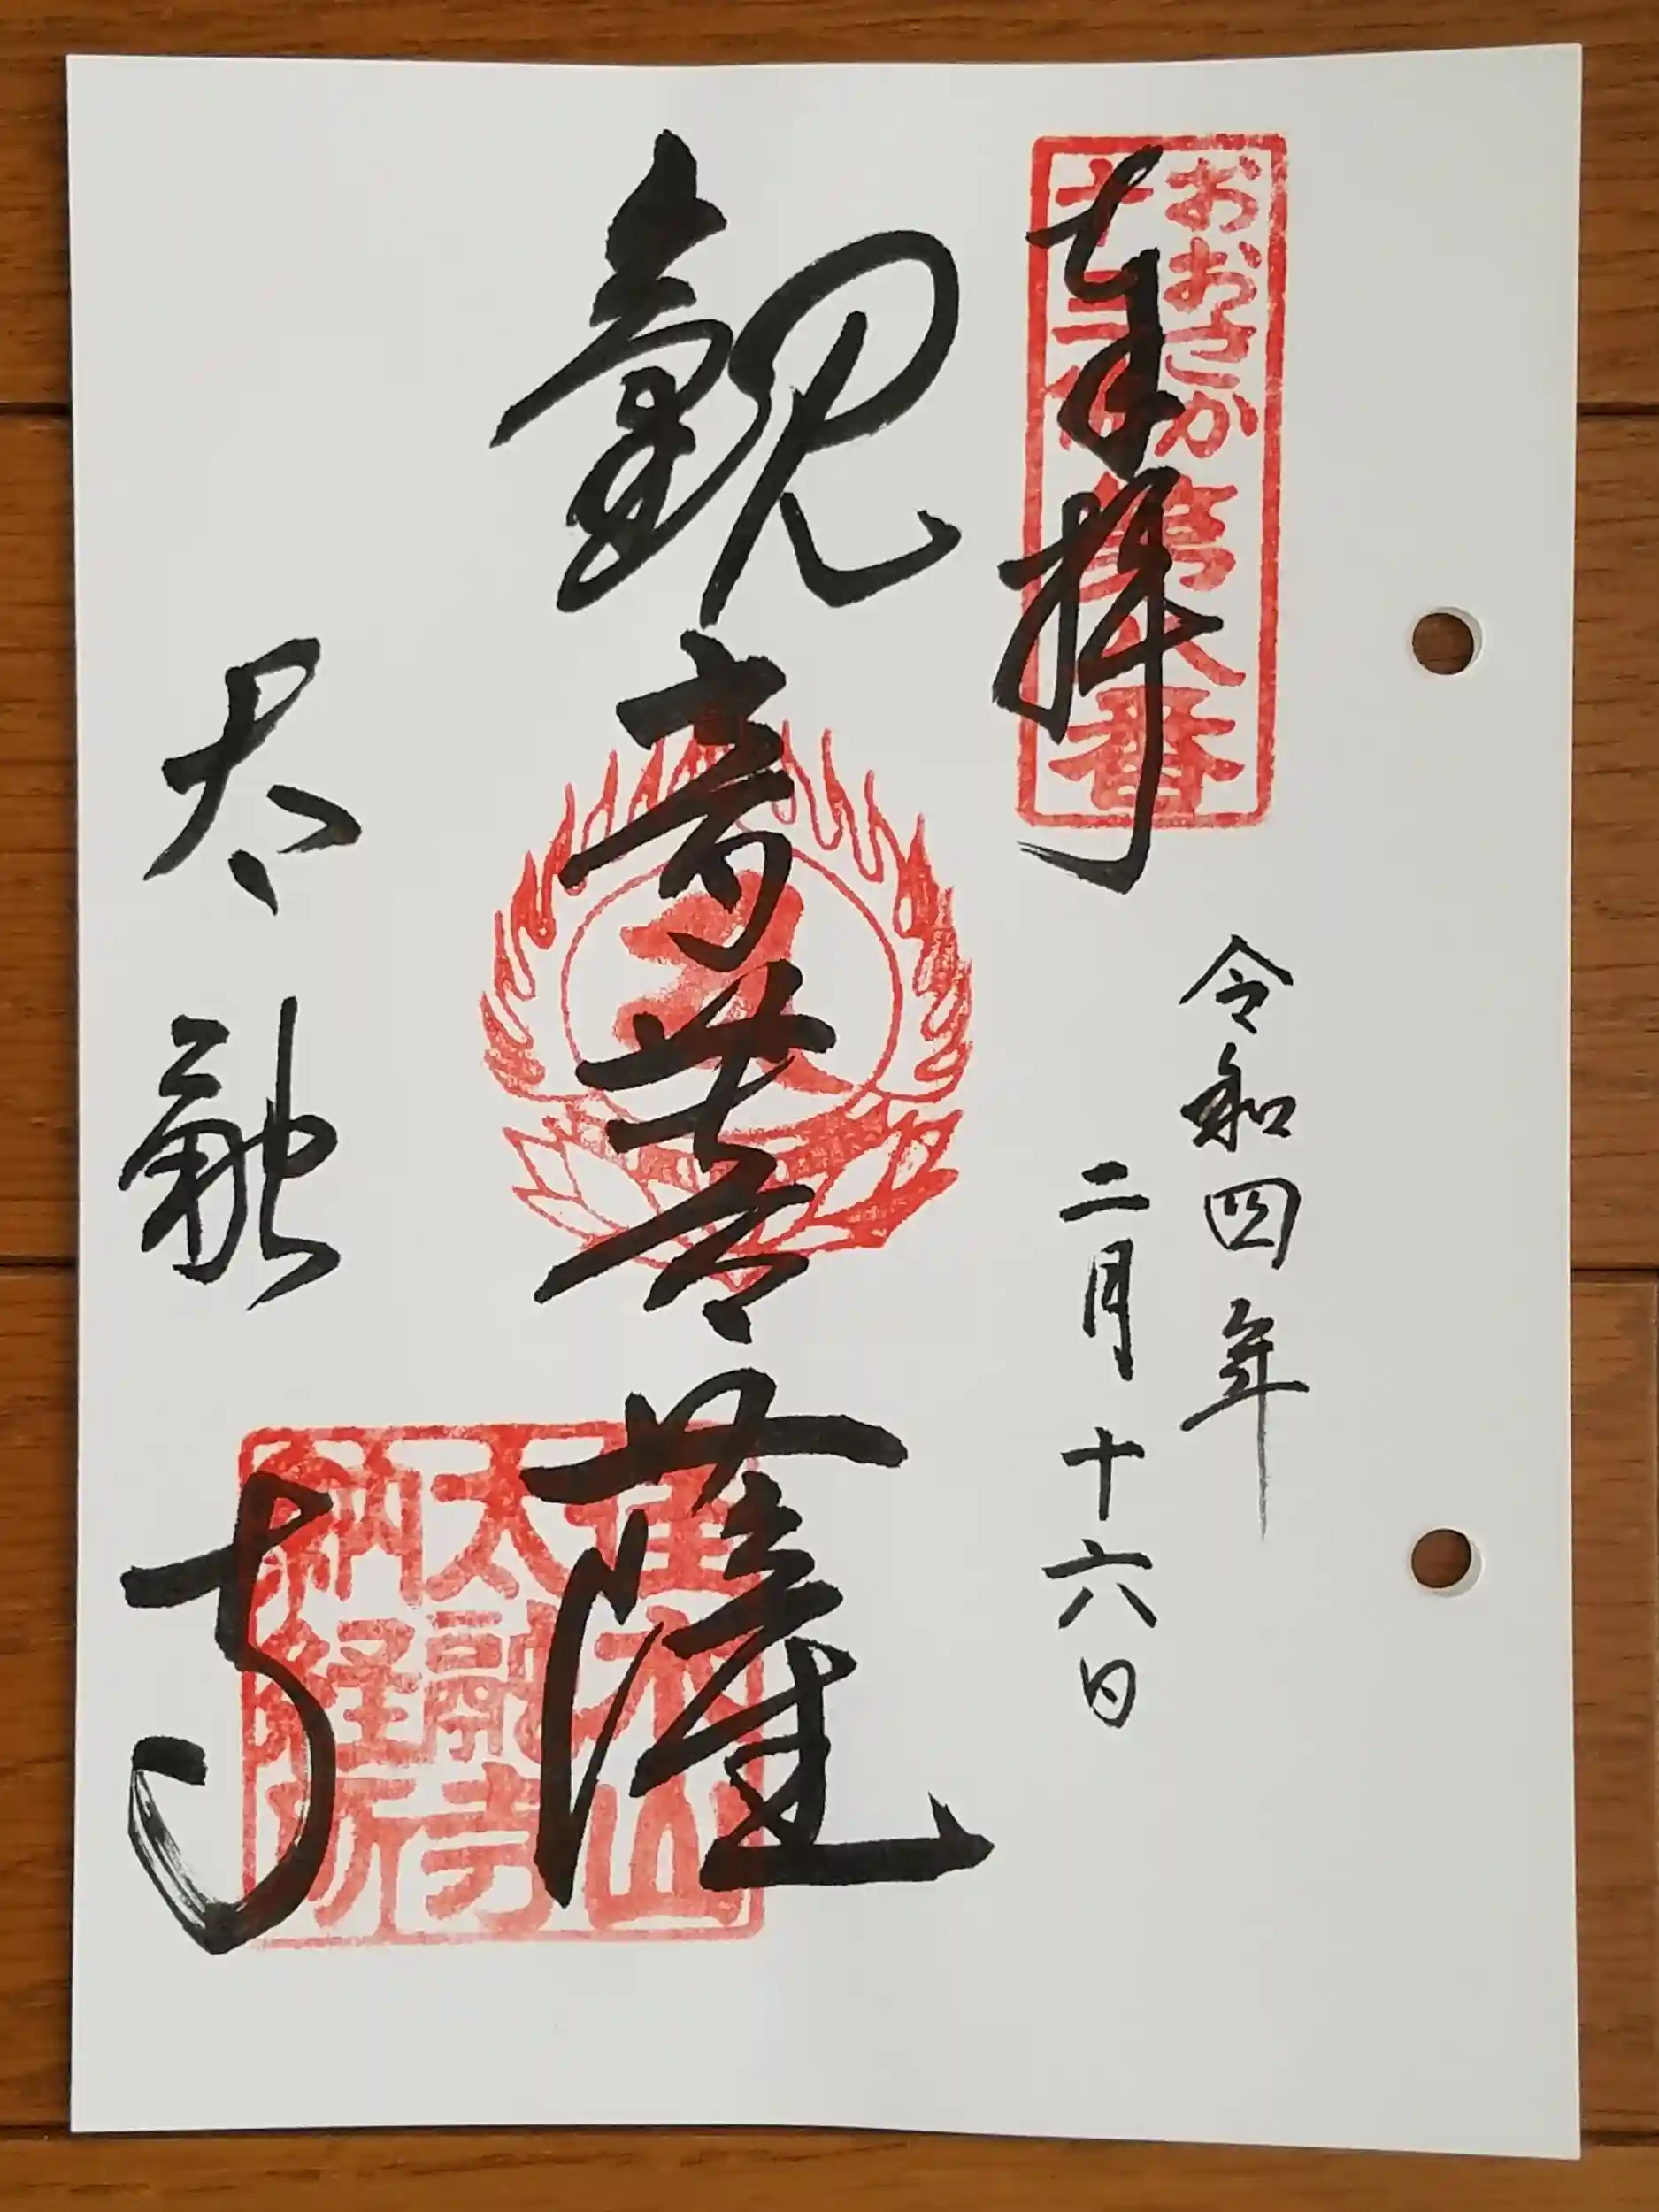 奉拝
おおさか
十三仏
第八番
令和四年
二月十六日
観音菩薩
太融寺
佳木山
太融寺
納経所